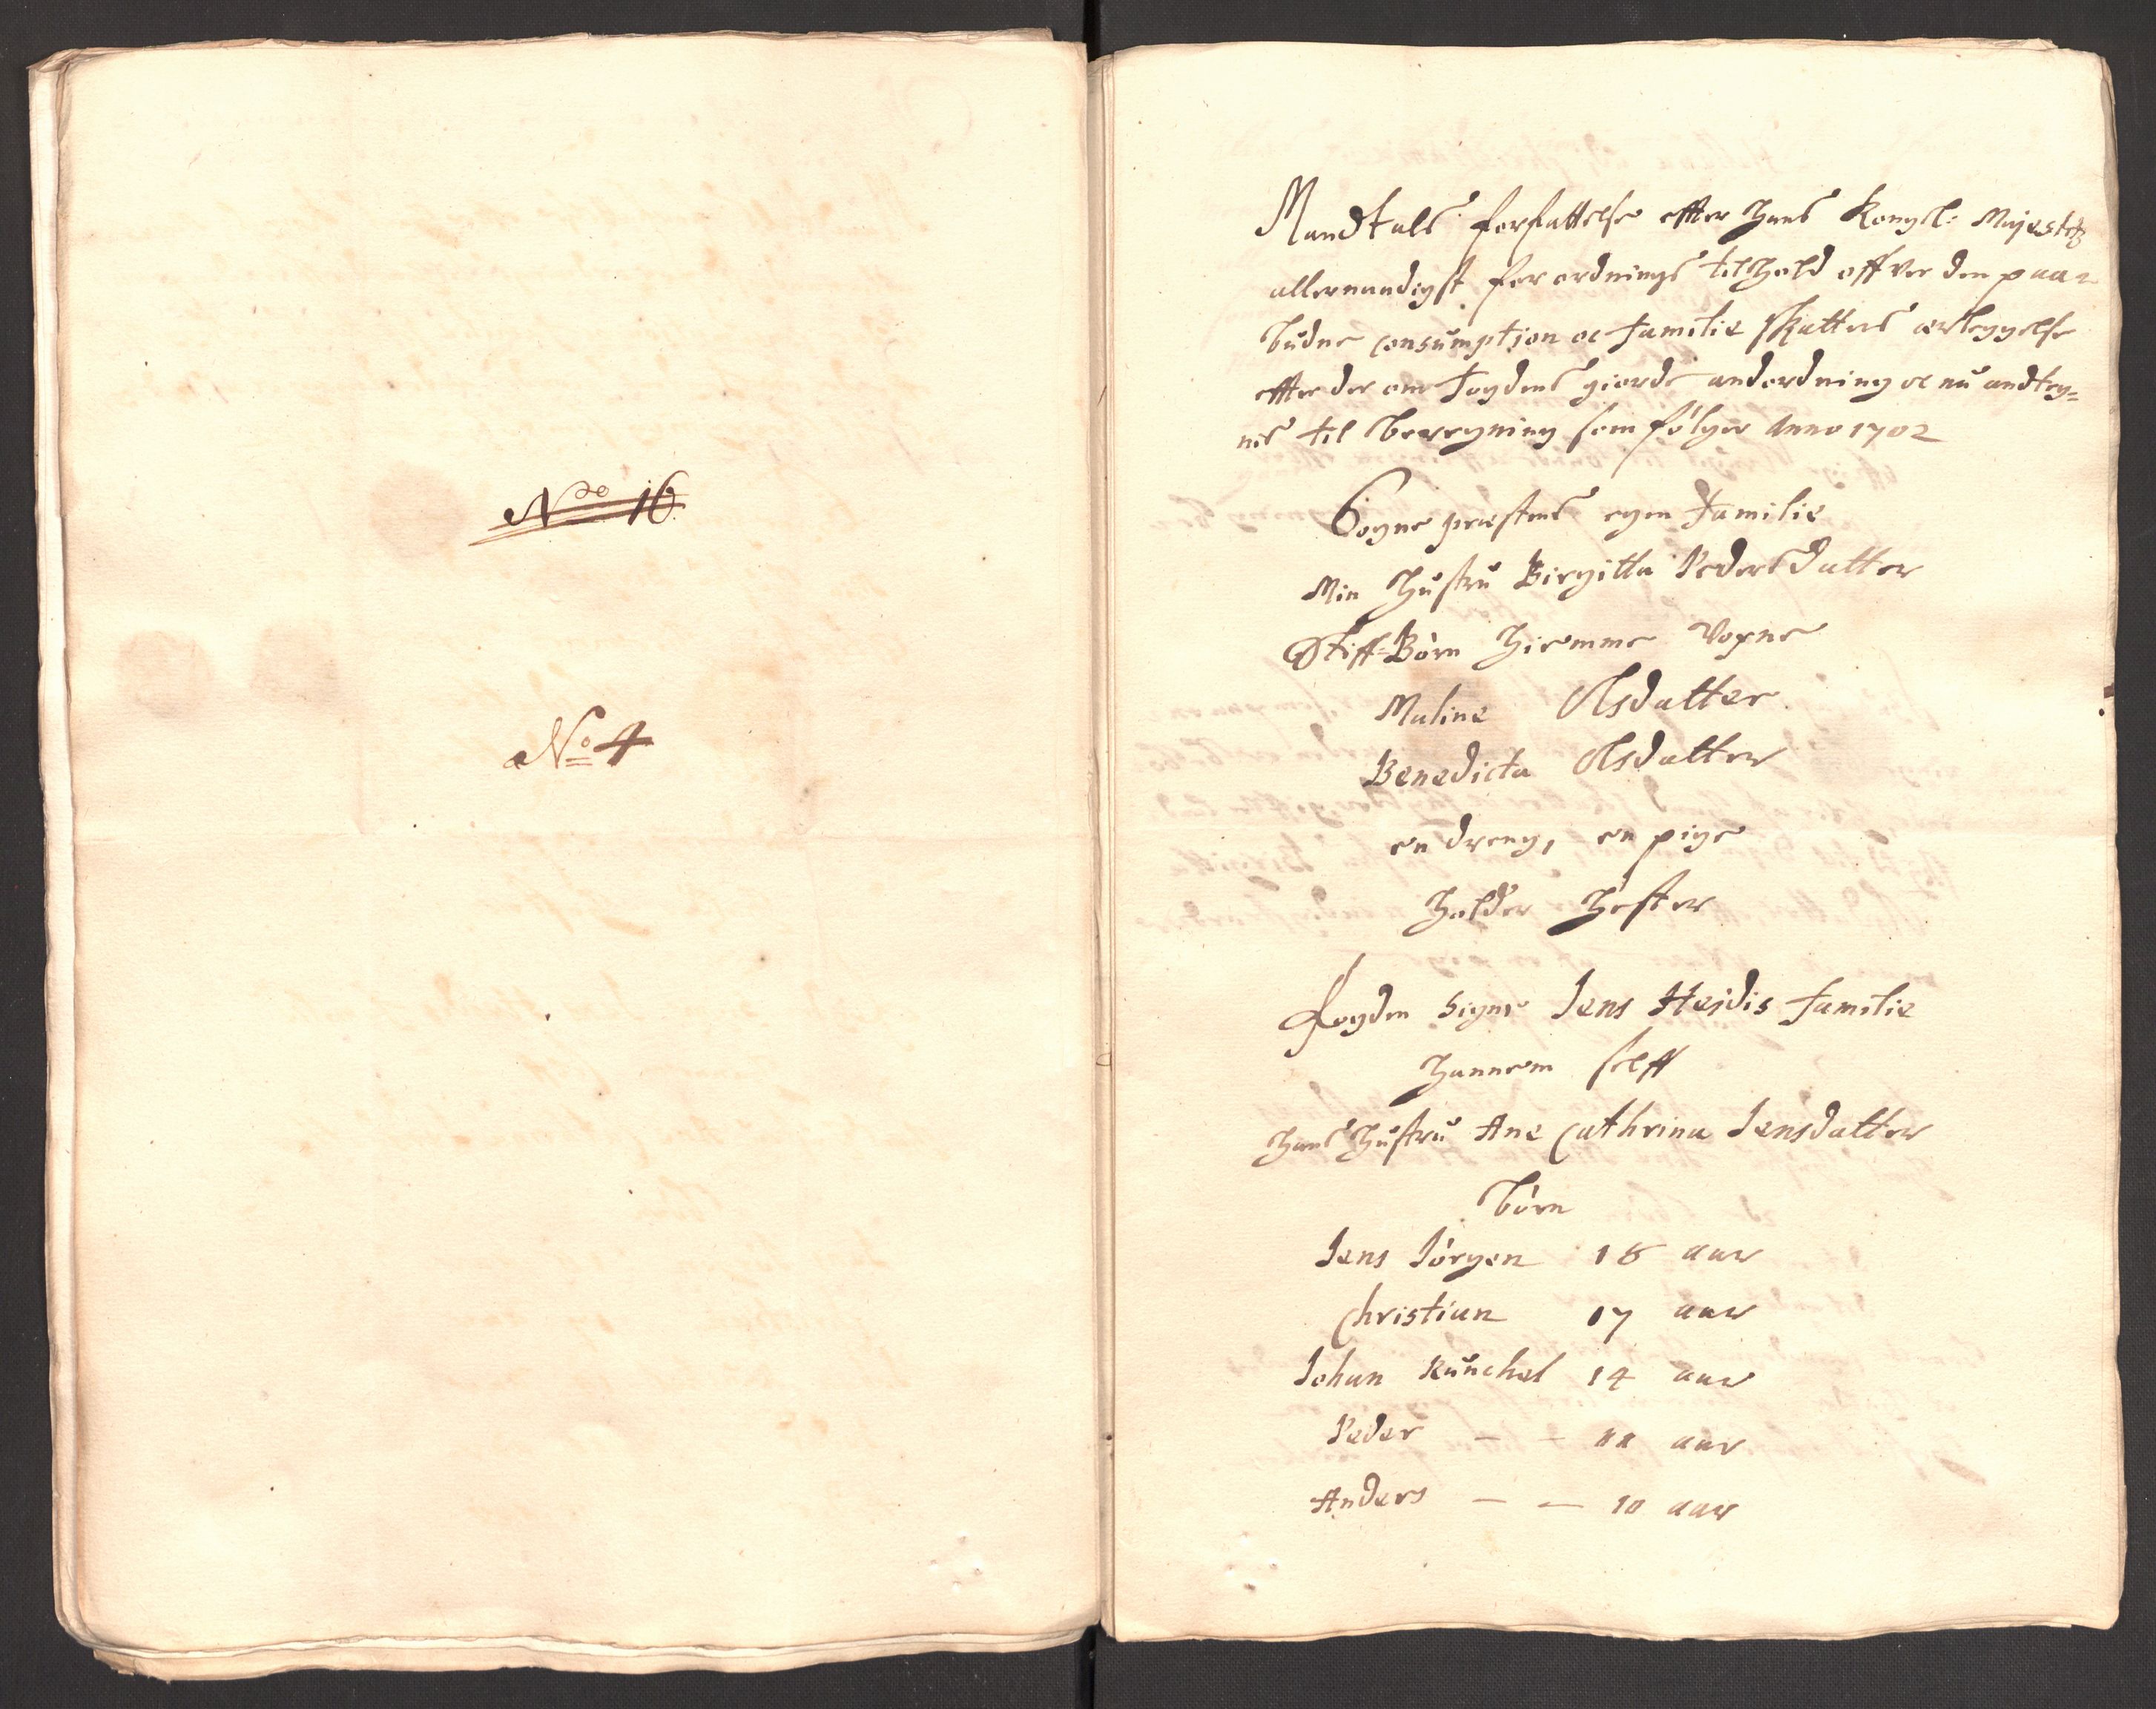 No 16.
No 4
Mandtals forfattelse effter Hans Kongl: Majestetz
allernaadigst forordnings tilhold offver den paa=
budne consumption oc familie skattens erleggelse
effter der om fogdens giorde andordning oc nu andteg=
nes til beregning som følger Anno 1702
Sogne præstens egen familie
Min Hustru Birgitta Pedersdatter
Stiff=Børn hiemme voxne
Maline Olsdatter
Benedicta Olsdatter
en dreng, en pige
holder hester
Fogden Signr Jens Hejdis familie
hannem self
hans hustru Ane Cathrina Jensdatter
børn
Jens Jørgen 18 aar
Christian 17 aar
Johan Kunchel 14 aar
Peder — — 11 aar
Anders — — 10 aar